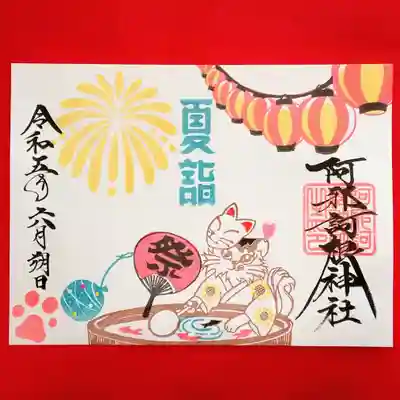 阿邪訶根神社
夏詣
祭
令和五年六月朔日